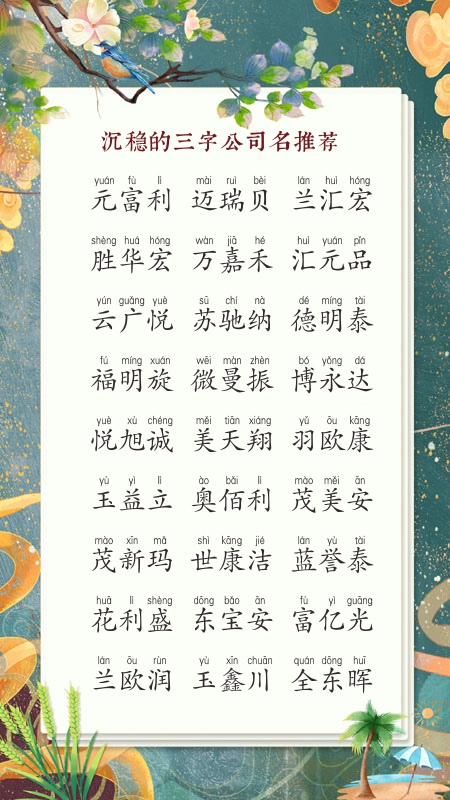 沉稳的三字公司名推荐
yuán fù lì mài ruì bèi lán huì hóng
元富利 迈瑞贝 兰汇宏
shèng huá hóng wàn jiā hé huì yuán pǐn
胜华宏 万嘉禾 汇元品
yún guǎng yuè sū chí nà dé míng tài
云广悦 苏驰纳 德明泰
fú míng xuán wēi màn zhèn bó yǒng dá
福明旋 微曼振 博永达
yuè xù chéng měi tiān xiáng yǔ ōu kāng
悦旭诚 美天翔 羽欧康
yù yì lì ào bǎi lì mào měi ān
玉益立 奥佰利 茂美安
mào xīn mǎ shì kāng jié lán yù tài
茂新玛 世康洁 蓝誉泰
huā lì shèng dōng bǎo ān fù yì guāng
花利盛 东宝安 富亿光
lán ōu rùn yù xīn chuān quán dōng huī
兰欧润 玉鑫川 全东晖